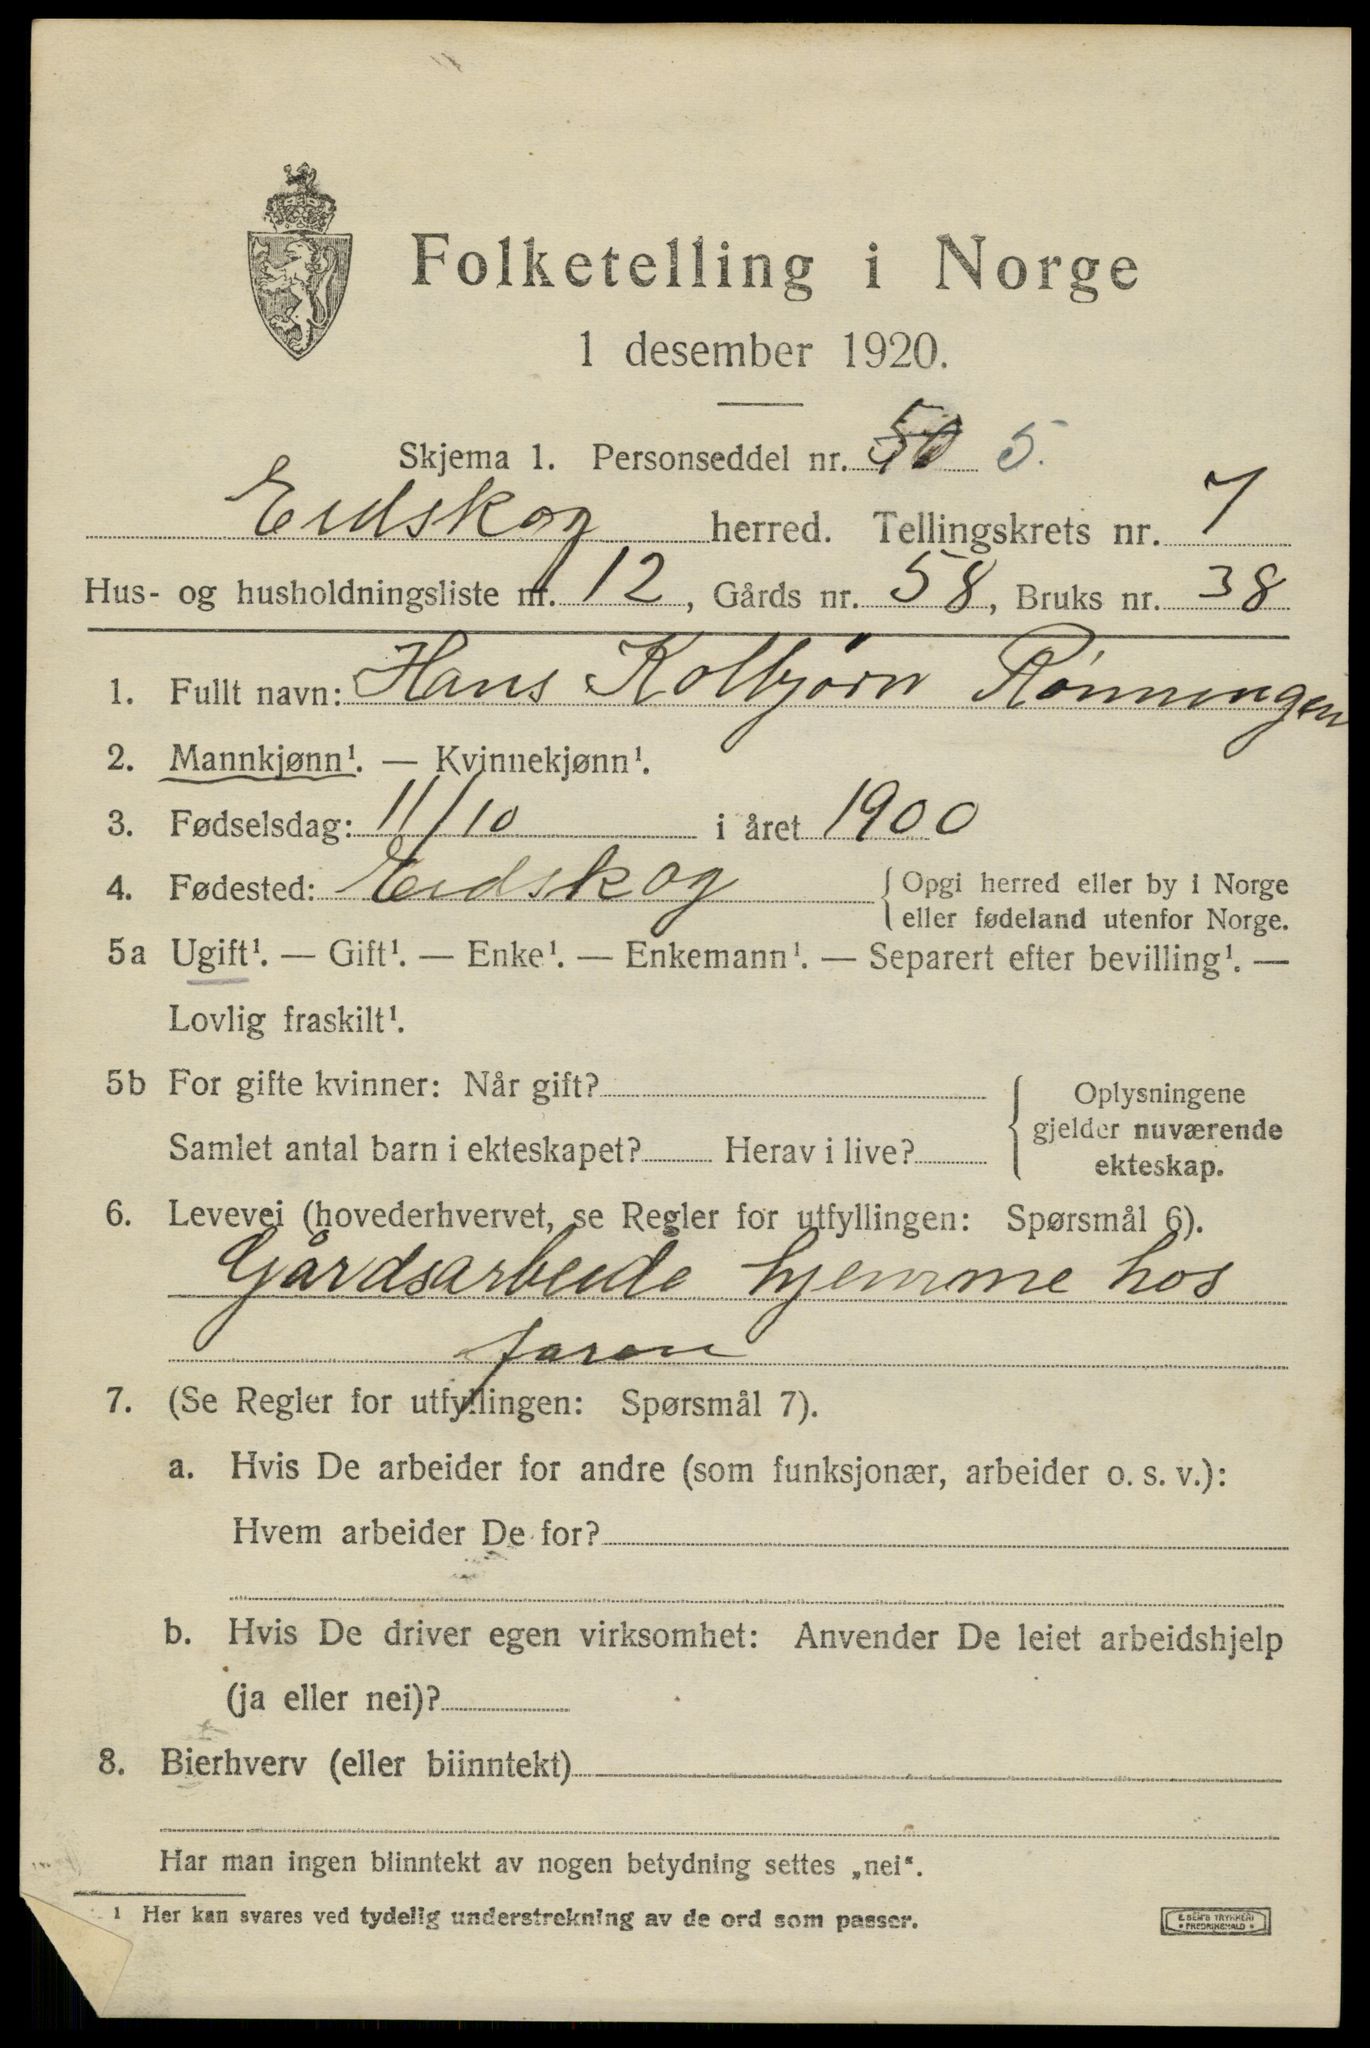 Folketelling i Norge
1 desember 1920.
Skjema 1. Personseddel nr. 50 5.
Eidskog herred. Tellingskrets nr. 7
Hus- og husholdningsliste nr. 12, Gårds nr. 58, Bruks nr. 38
1. Fullt navn: Hans Kolbjørn Rønningen
2. Mannkjønn¹. — Kvinnekjønn¹.
3. Fødselsdag: 11/10 i året 1900
4. Fødested: Eidskog { Opgi herred eller by i Norge
eller fødeland utenfor Norge.
5a Ugift¹. — Gift¹. — Enke¹. — Enkemann¹. — Separert efter bevilling¹. —
Lovlig fraskilt¹.
5b For gifte kvinner: Når gift?
Samlet antal barn i ekteskapet? Herav i live?
{ Oplysningene
gjelder nuværende
ekteskap.
6. Levevei (hovederhvervet, se Regler for utfyllingen: Spørsmål 6).
Gårdsarbeide hjemme hos
faren
7. (Se Regler for utfyllingen: Spørsmål 7).
a. Hvis De arbeider for andre (som funksjonær, arbeider o. s. v.):
Hvem arbeider De for?
b. Hvis De driver egen virksomhet: Anvender De leiet arbeidshjelp
(ja eller nei)?
8. Bierhverv (eller biinntekt)
Har man ingen biinntekt av nogen betydning settes „nei“.
¹ Her kan svares ved tydelig understrekning av de ord som passer.
E. SEM'S TRYKKERI
• FREDRIKSHALD •